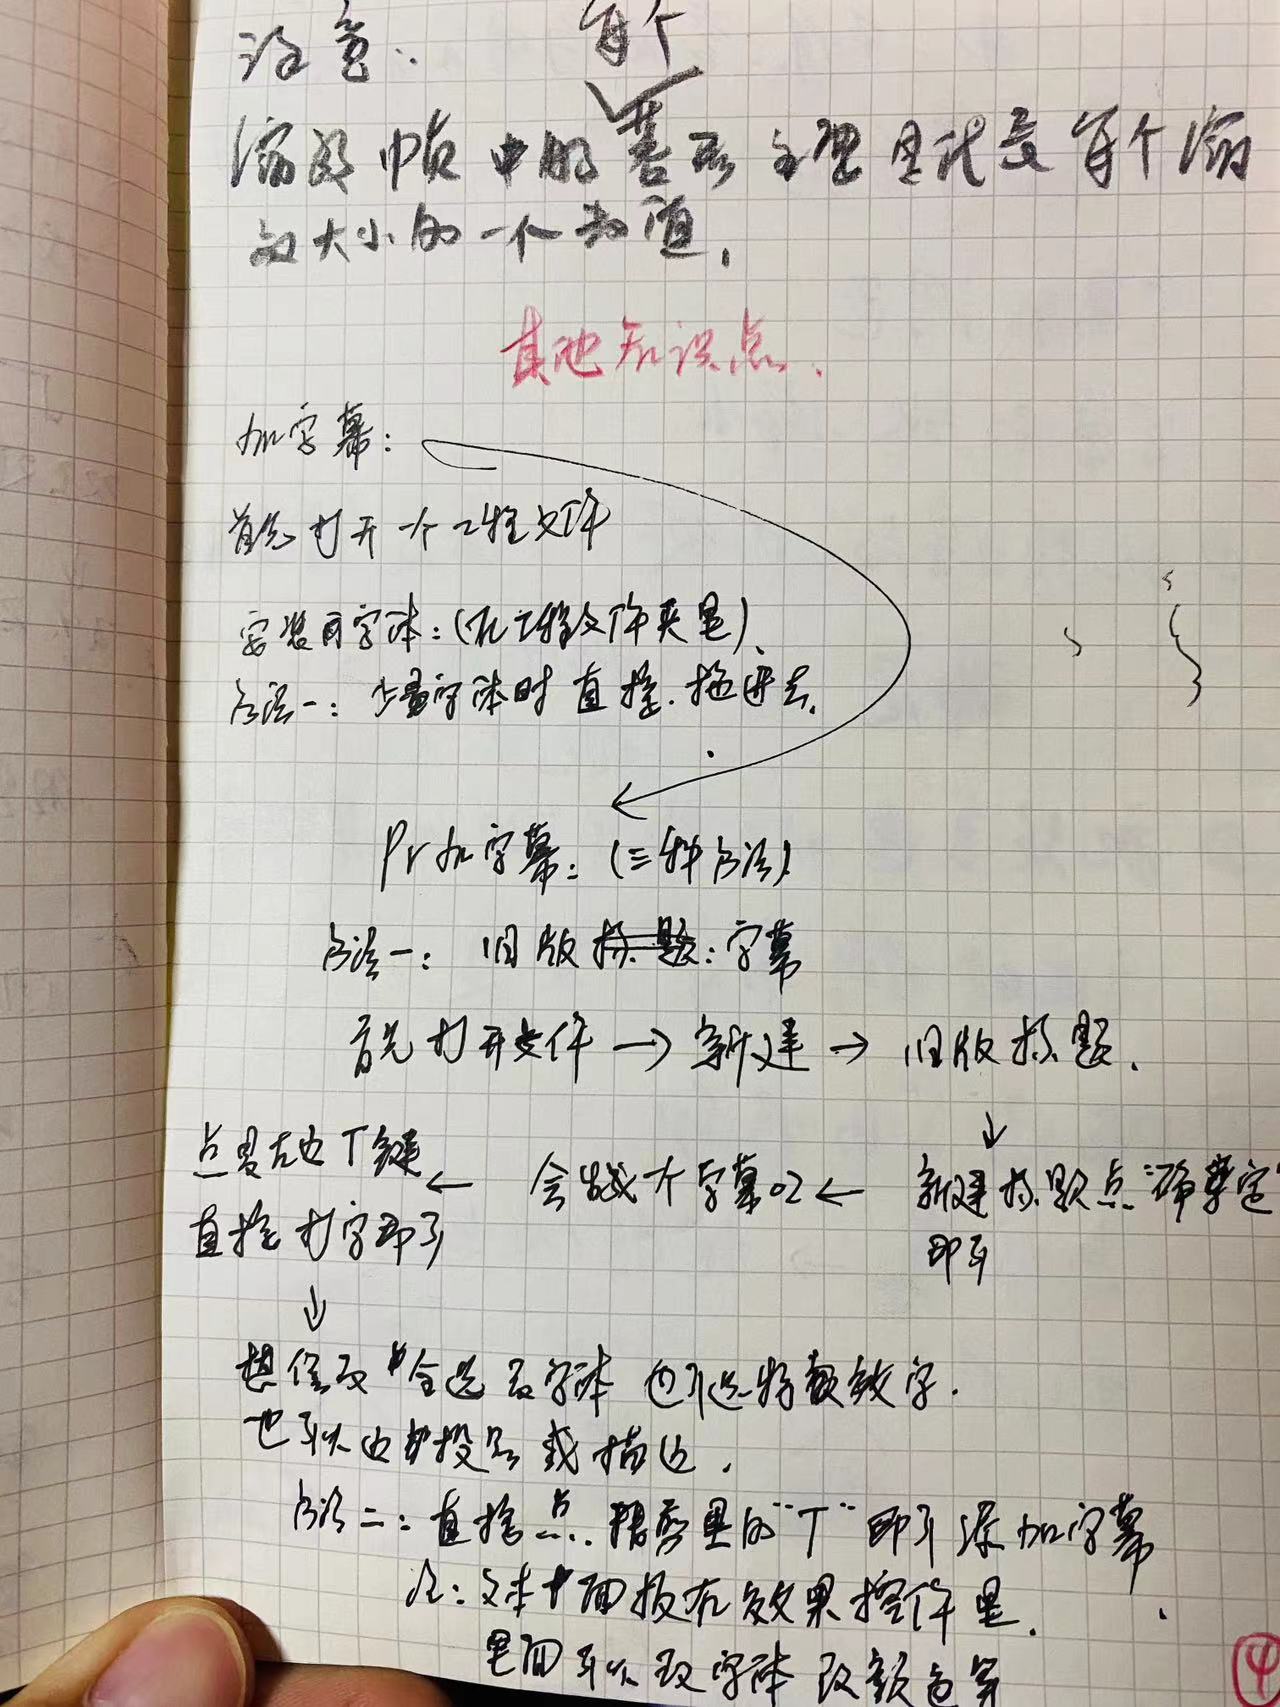 注意: 每个
缩放帧中的菱形主要是代表每个缩
放大小的一个数值.
其他知识点.
加字幕:
首先打开一个工程文件
安装用字体:(在工程文件夹里)
方法一: 少量字体时直接.拖进去.
Pr加字幕: (三种方法)
方法一: 旧版标题:字幕
首先打开文件 → 新建 → 旧版标题.
点里左边T键 ← 会生成个字幕02 ← 新建标题点"确定"
直接打字即可 即可
想修改 全选 改字体 也可选特效字.
也可以 投影或描边.
方法二: 直接点.里的"T"即可添加字幕
注: 文本面板在效果控件里.
里面可以改字体改颜色等
4